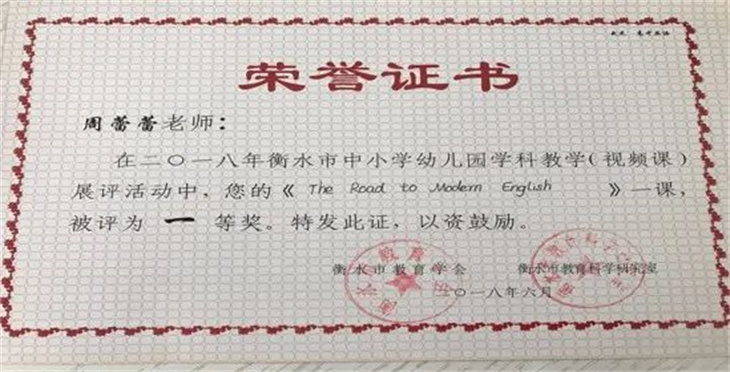 荣誉证书
周蕾蕾老师：
在二〇一八年衡水市中小学幼儿园学科教学(视频课)
展评活动中，您的《 The Road to Modern English 》一课，
被评为 一 等奖。特发此证，以资鼓励。
衡水市教育学会 衡水市教育科学研究室
二〇一八年六月